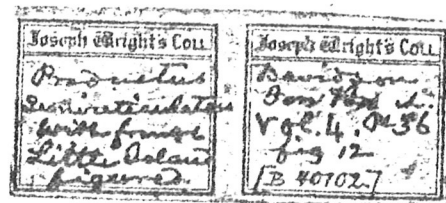 Joseph Wright's Coll.
Productus
semireticulatus
with fringe
Little Island
figured.
Joseph Wright's Coll.
Davidson
Vol. 4. Pl 36
fig 12
[B 40702]